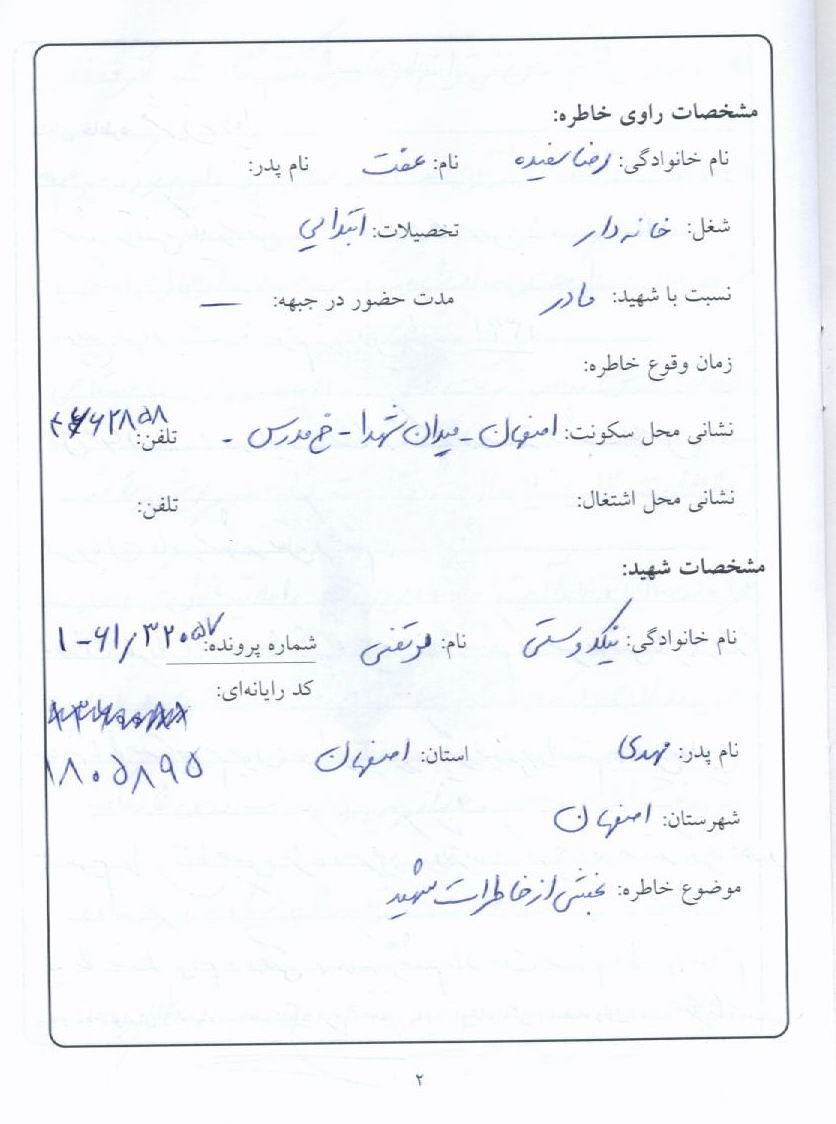 مشخصات راوی خاطره:
نام خانوادگی: رضا سفیده نام: عفت نام پدر:
شغل: خانه دار تحصیلات: ابتدایی
نسبت با شهید: مادر مدت حضور در جبهه: —
زمان وقوع خاطره:
نشانی محل سکونت: اصفهان - میدان شهدا - خ مدرس - تلفن:
نشانی محل اشتغال: تلفن:
مشخصات شهید:
نام خانوادگی: نیکدوستی نام: مرتضی شماره پرونده: ۱-۶۱/۳۲۰۵۷
کد رایانه‌ای:
نام پدر: مهدی استان: اصفهان ۱۸۰۵۸۹۵
شهرستان: اصفهان
موضوع خاطره: بخشی از خاطرات شهید
۲